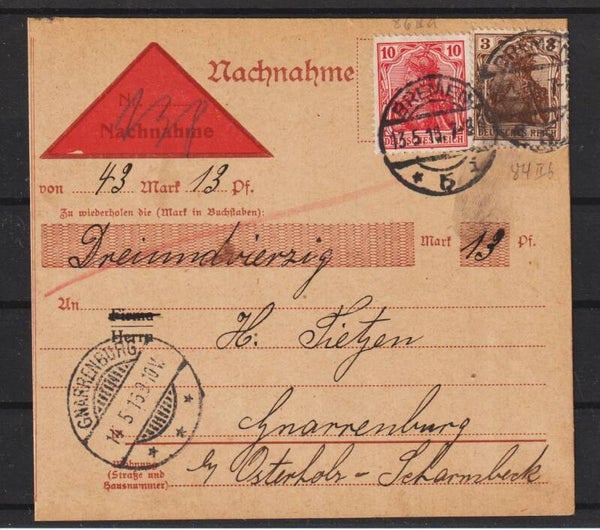 86 II a
Nachnahme
10 10
DEUTSCHES REICH
3 3
DEUTSCHES REICH
BREMEN
13.5.15. 7-8
* 5 i
BREMEN
84 II b
Nachnahme
von 43 Mark 13 Pf.
Zu wiederholen die (Mark in Buchstaben):
Dreiundvierzig Mark 13 Pf.
An Firma
Herrn H. Tietjen
GNARRENBURG
14.5.15.9-10V.
* * *
Gnarrenburg
Wohnung
(Straße und
Hausnummer)
b/ Osterholz-Scharmbeck